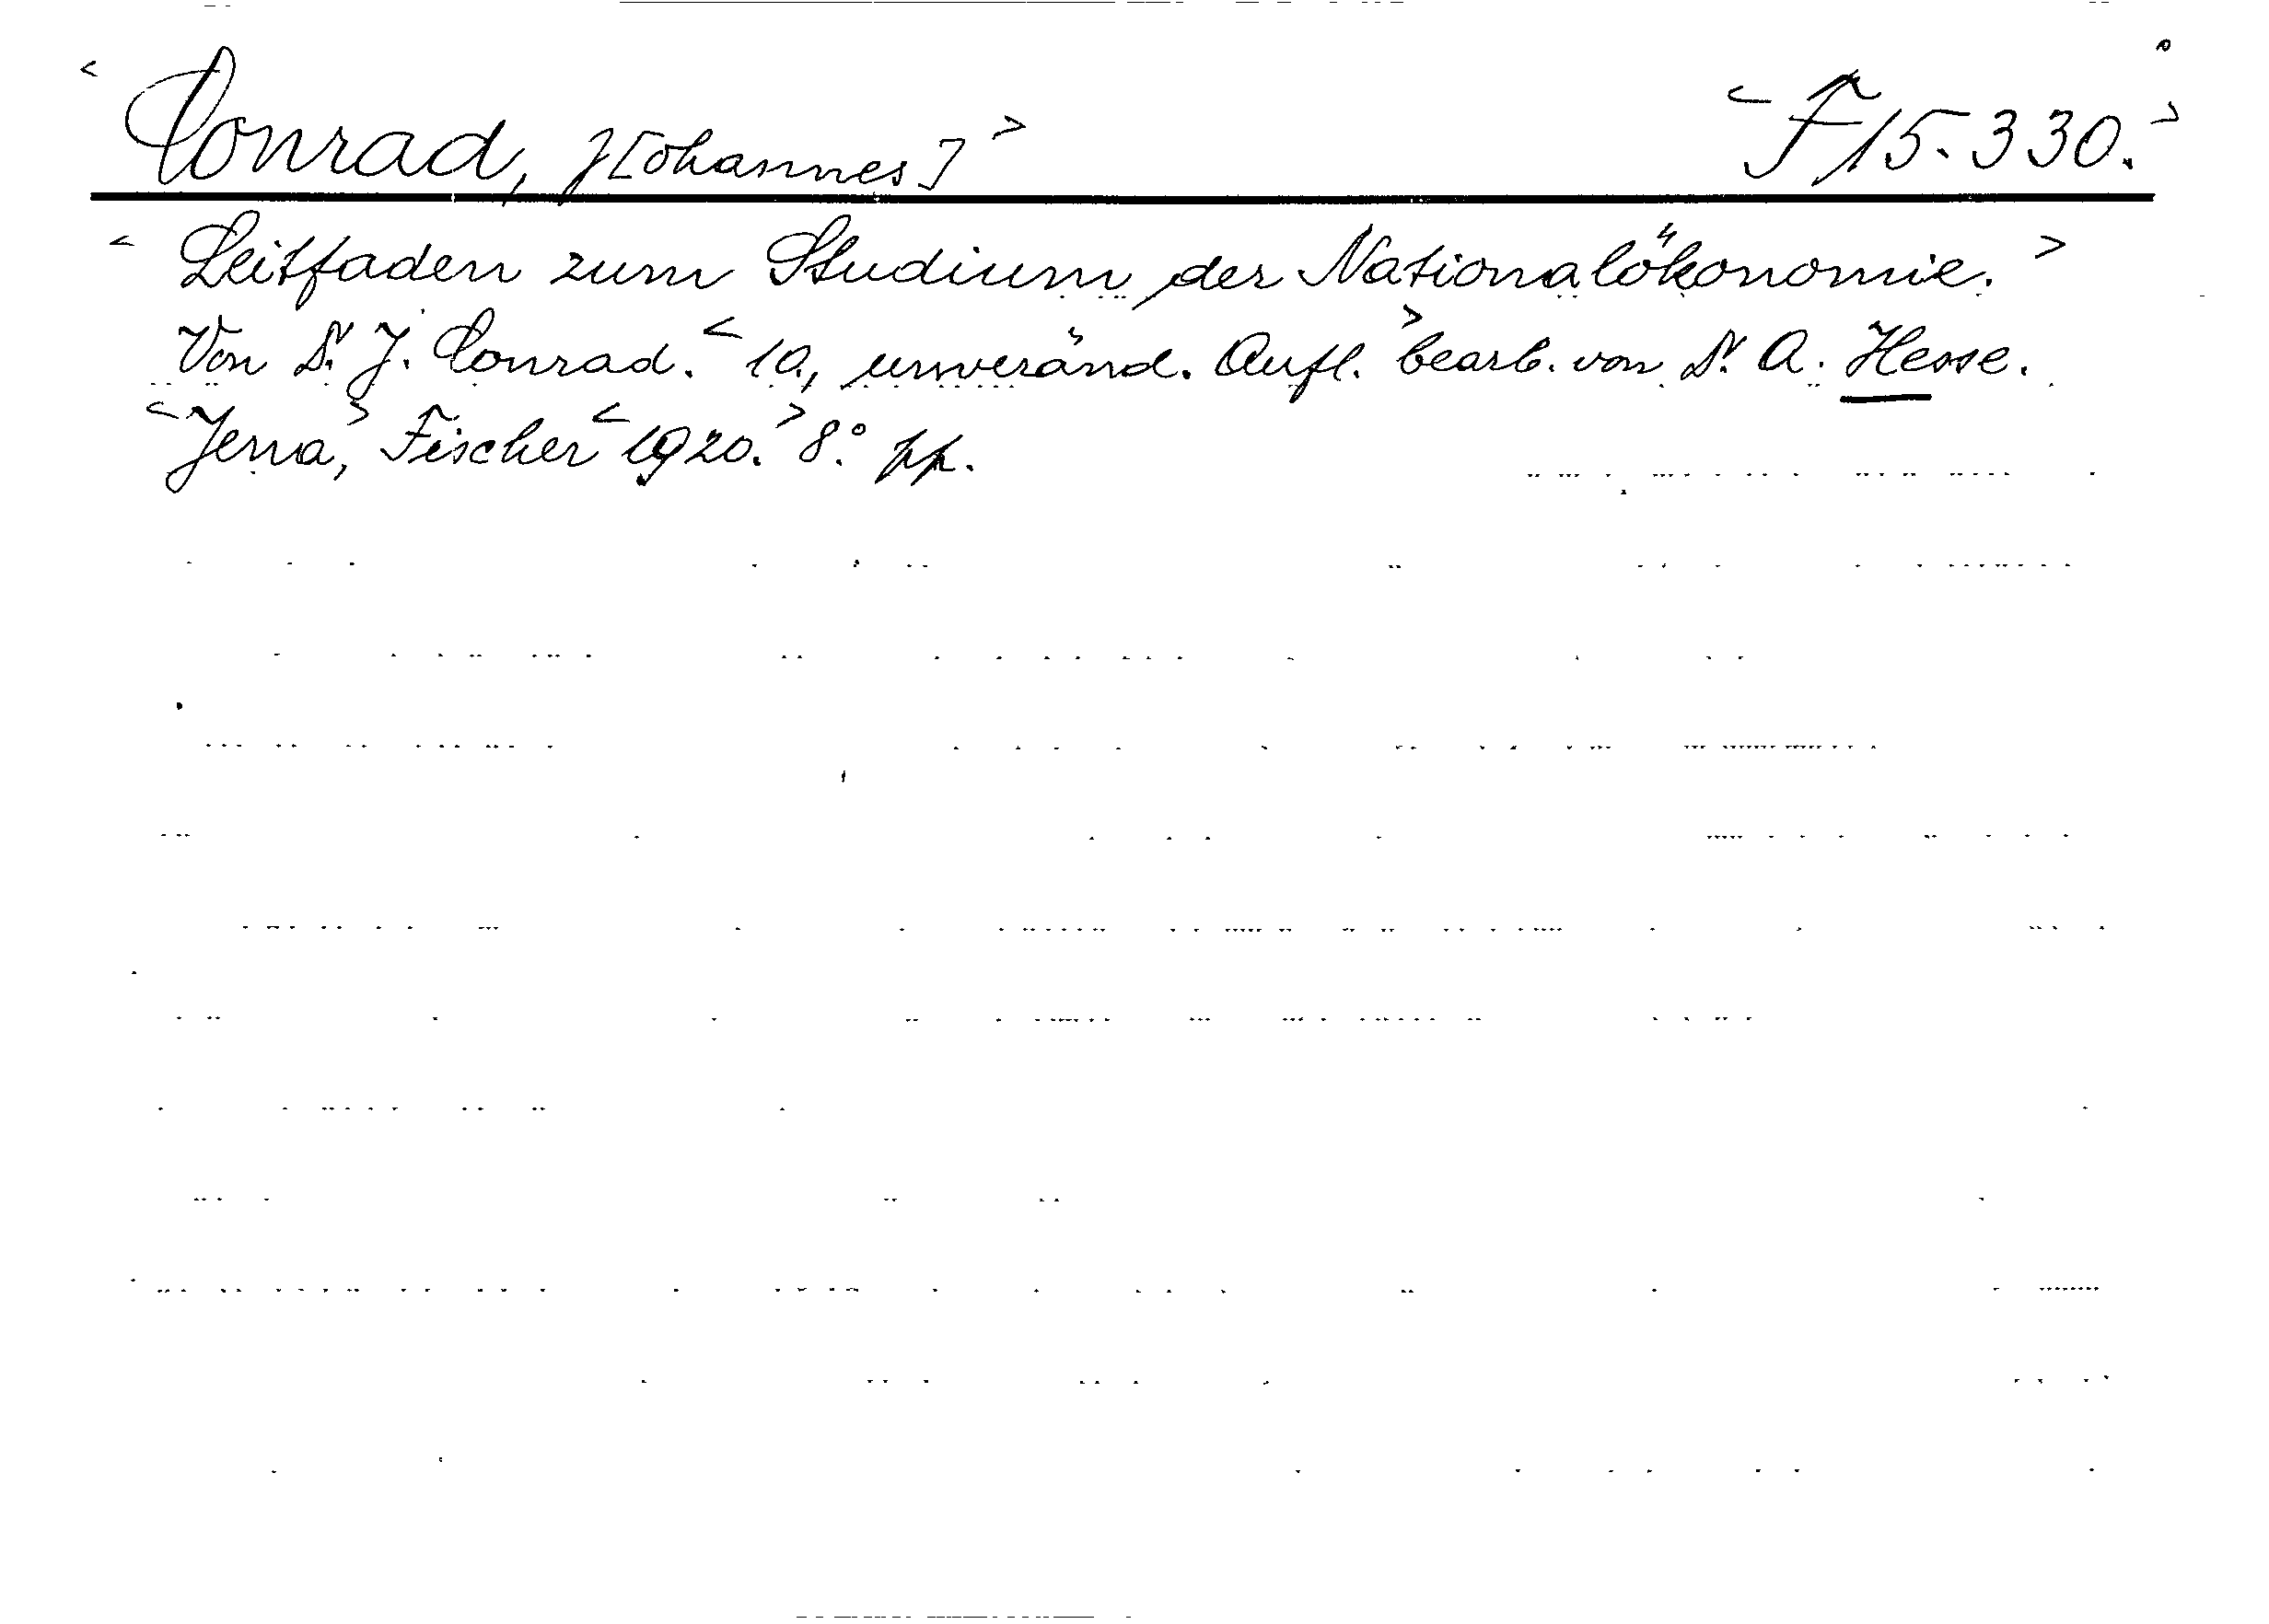 < Conrad, J[ohannes] > < F 15.330. >
< Leitfaden zum Studium der Nationalökonomie. >
Von Dr. J. Conrad. < 10., unveränd. Aufl. > bearb. von Dr. A. Hesse.
< Jena, > Fischer < 1920. > 8.° pp.